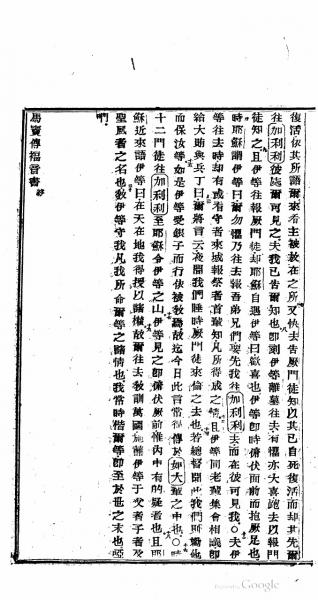 復活依其所語爾來看主被赦在之所又快去告厥門徒知以其已自死復活而却其先爾
往加利利彼處爾可見之夫我已告爾知也即刻伊等離墓往去有懼亦大喜跑去以報門
徒知之且伊等往報厥門徒却耶穌自遇伊等曰歡喜也伊等即時俯伏面前而抱厥足也
時耶穌謂伊等曰爾勿懼乃往去報吾弟兄們要先我往加利利去而在彼可見我○夫伊
等往去時却有或看守者來城報祭者首輩知凡所得成之情且伊等同老輩集會相議即
給大助與兵丁曰爾將言云夜間我們睡時厥門徒來偷之去也若總督聞此我們則勸他
而保汝等如是伊等受銀子而行依被教
故迄今日此言常得傳於如大輩之中也○時
十二門徒往加利利至耶穌令伊等之山伊等見之即俯伏厥前惟內中有的疑者也且耶
穌近來語伊等曰在天在地我得授以諸權故爾往去教訓萬國施洗伊等于父者子者及
聖風者之名也教伊等守我凡我所命爾等之諸情也我當時偕爾等即至於世之末也啞
們
馬竇傳福音書 終
Google